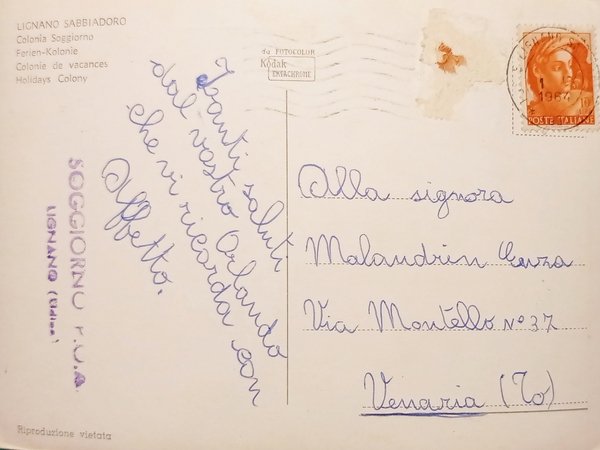 LIGNANO SABBIADORO
Colonia Soggiorno
Ferien-Kolonie
Colonie de vacances
Holidays Colony
da FOTOCOLOR
Kodak
EKTACHROME
1964
POSTE ITALIANE
Tanti saluti
dal vostro Orlando
che vi ricorda con
Affetto.
SOGGIORNO P.O.A.
LIGNANO (Udine)
Alla signora
Malandrin Enza
Via Montello N° 37
Venaria (To)
Riproduzione vietata